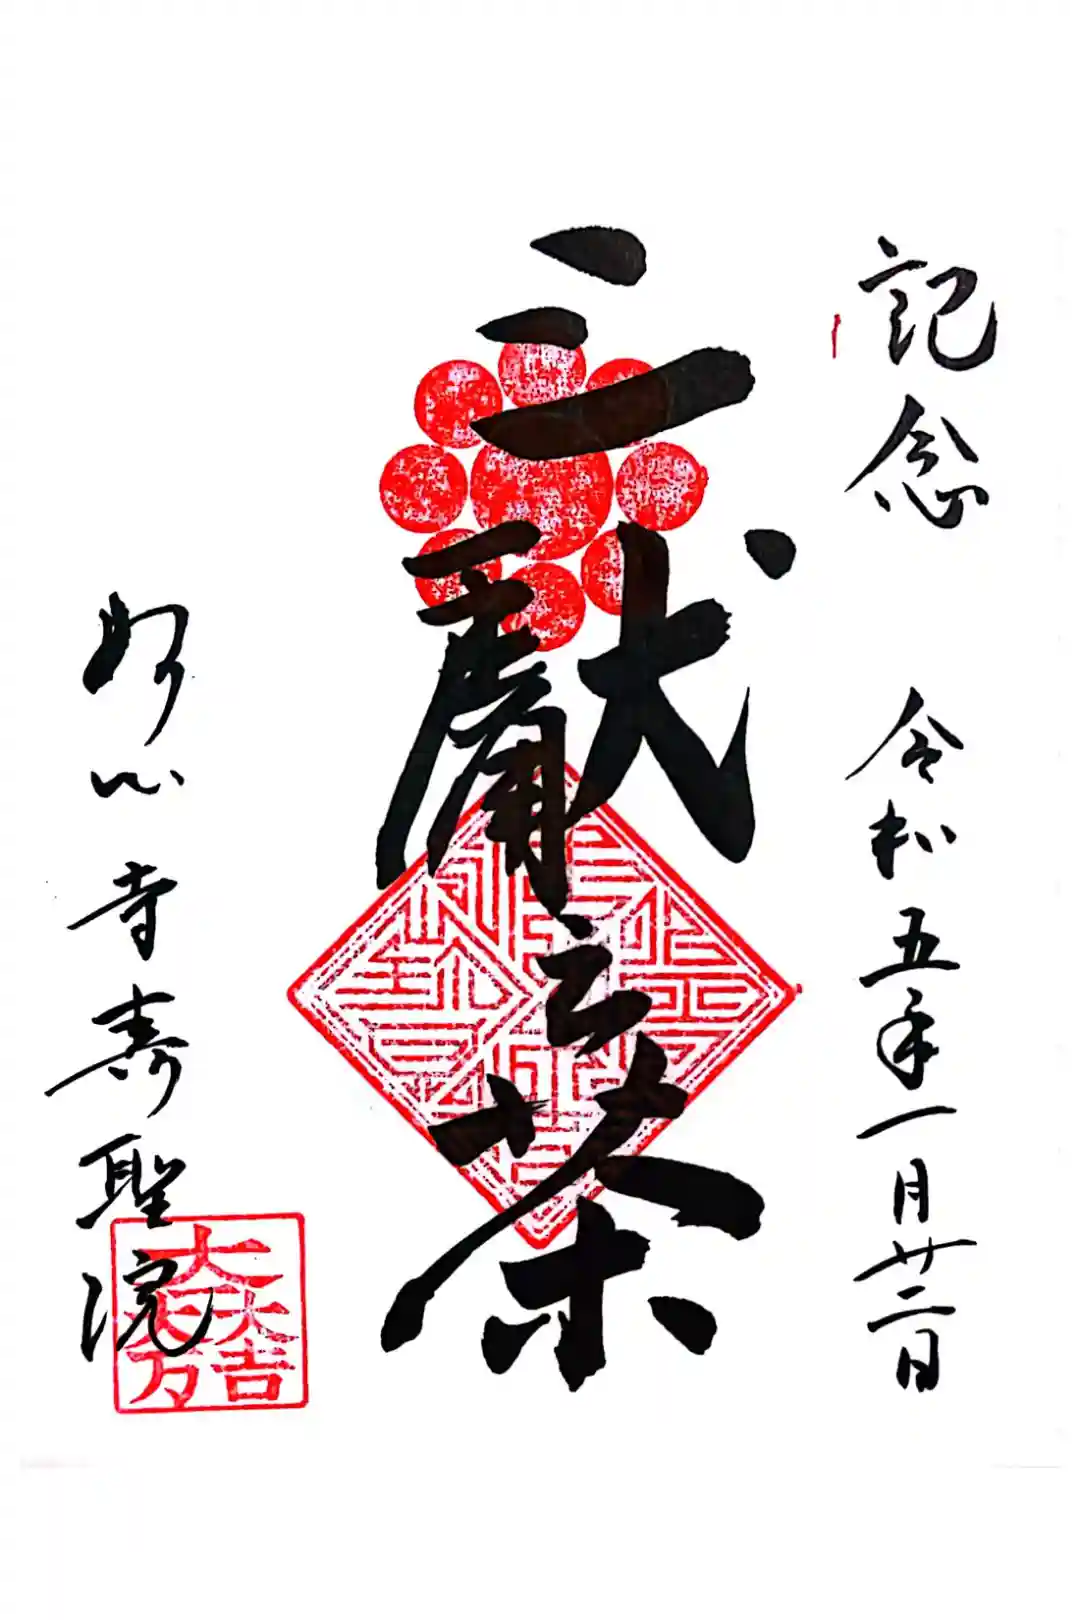 記念 令和五年一月廿二日
三獻之茶
妙心寺壽聖院
大一大万大吉